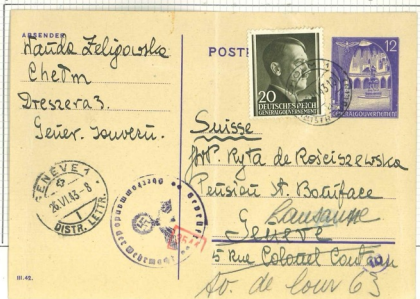 ABSENDER:
Wanda Zeligowska
Chełm
Dreszera 3.
Gener. Gouvern.
POSTK
20
DEUTSCHES REICH
GENERALGOUVERNEMENT
12
GENERALGOUVERNEMENT
Suisse
Ryta de Rościszewska
Pension St. Boniface
Lausanne
Genève
5 Rue Colonel Coutau
Av. de Cour 63
GENÈVE 1
26.VI.43-8
DISTR. LETTR.
Oberkommando der Wehrmacht
Geprüft
III.42.